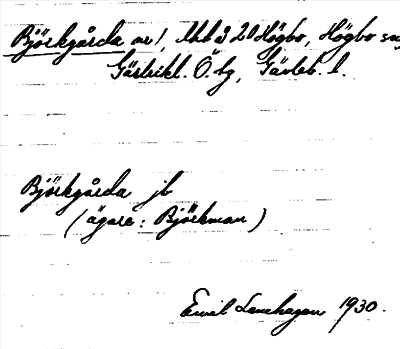 Björkgårda nr 1, Utb å 20 Högbo, Högbo sn,
Gästrikl. Ö. tg, Gävleb. l.
Björkgårda jb
(ägare: Björkman)
Emil Lenhagen 1930.